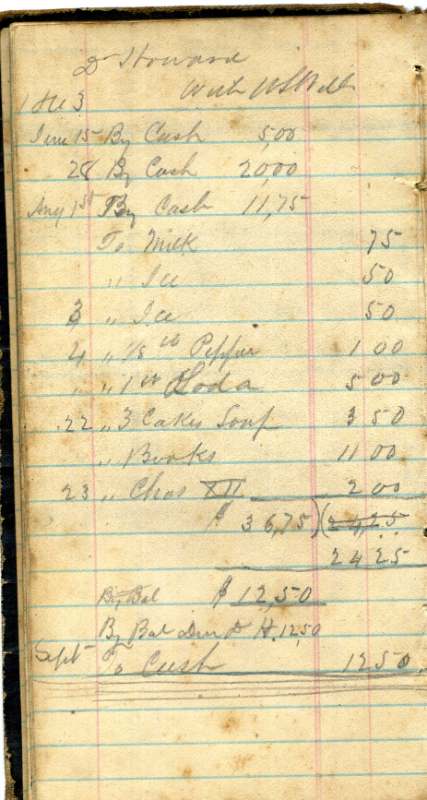 Dr Howard
With W S Bell
1863
June 15 By Cash 5,00
28 By Cash 20,00
Aug 1st By Cash 11,75
To Milk 75
" Ice 50
3 " Ice 50
4 " 1/8 lb Pepper 1 00
" " 1 lb Soda 5 00
22 " 3 Cakes Soap 3 50
" Books 11 00
23 " Chas XII 2 00
$ 36,75 ) (24,25
24 25
By Bal $ 12,50
By Bal Due Dr H. 12,50
Sept To Cash 12 50